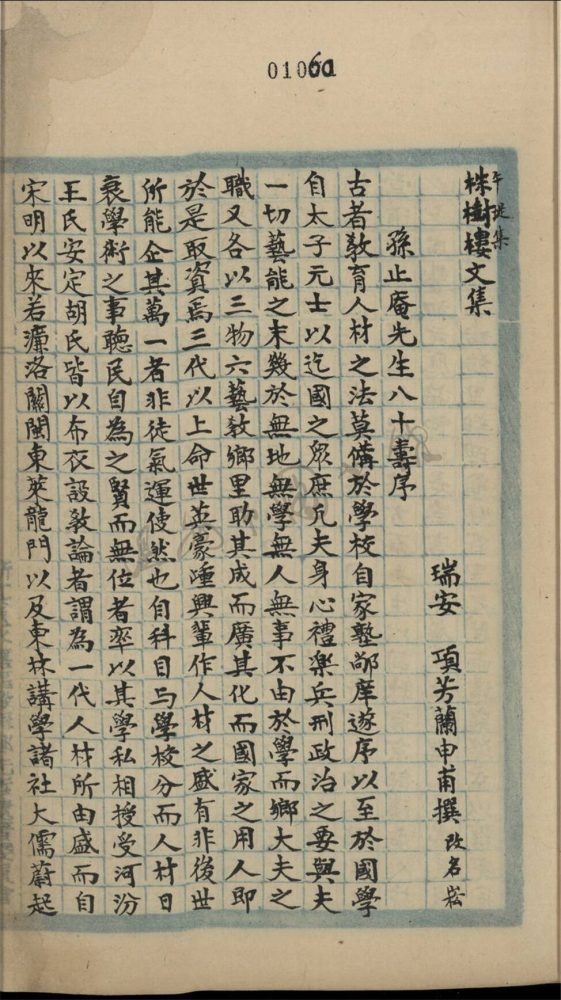 01060
株樹樓文集
午堤集
瑞安 項芳蘭申甫撰 改名崧
孫止庵先生八十壽序
古者教育人材之法莫備於學校自家塾鄙庠遂序以至於國學
自太子元士以迄國之眾庶凡夫身心禮樂兵刑政治之要與夫
一切藝能之末幾於無地無學無人無事不由於學而鄉大夫之
職又各以三物六藝教鄉里助其成而廣其化而國家之用人即
於是取資焉三代以上命世英豪踵興輩作人材之盛有非後世
所能企其萬一者非徒氣運使然也自科目与學校分而人材日
衰學術之事聽民自為之賢而無位者率以其學私相授受河汾
王氏安定胡氏皆以布衣設教論者謂為一代人材所由盛而自
宋明以來若濂洛關閩東萊龍門以及東林講學諸社大儒蔚起